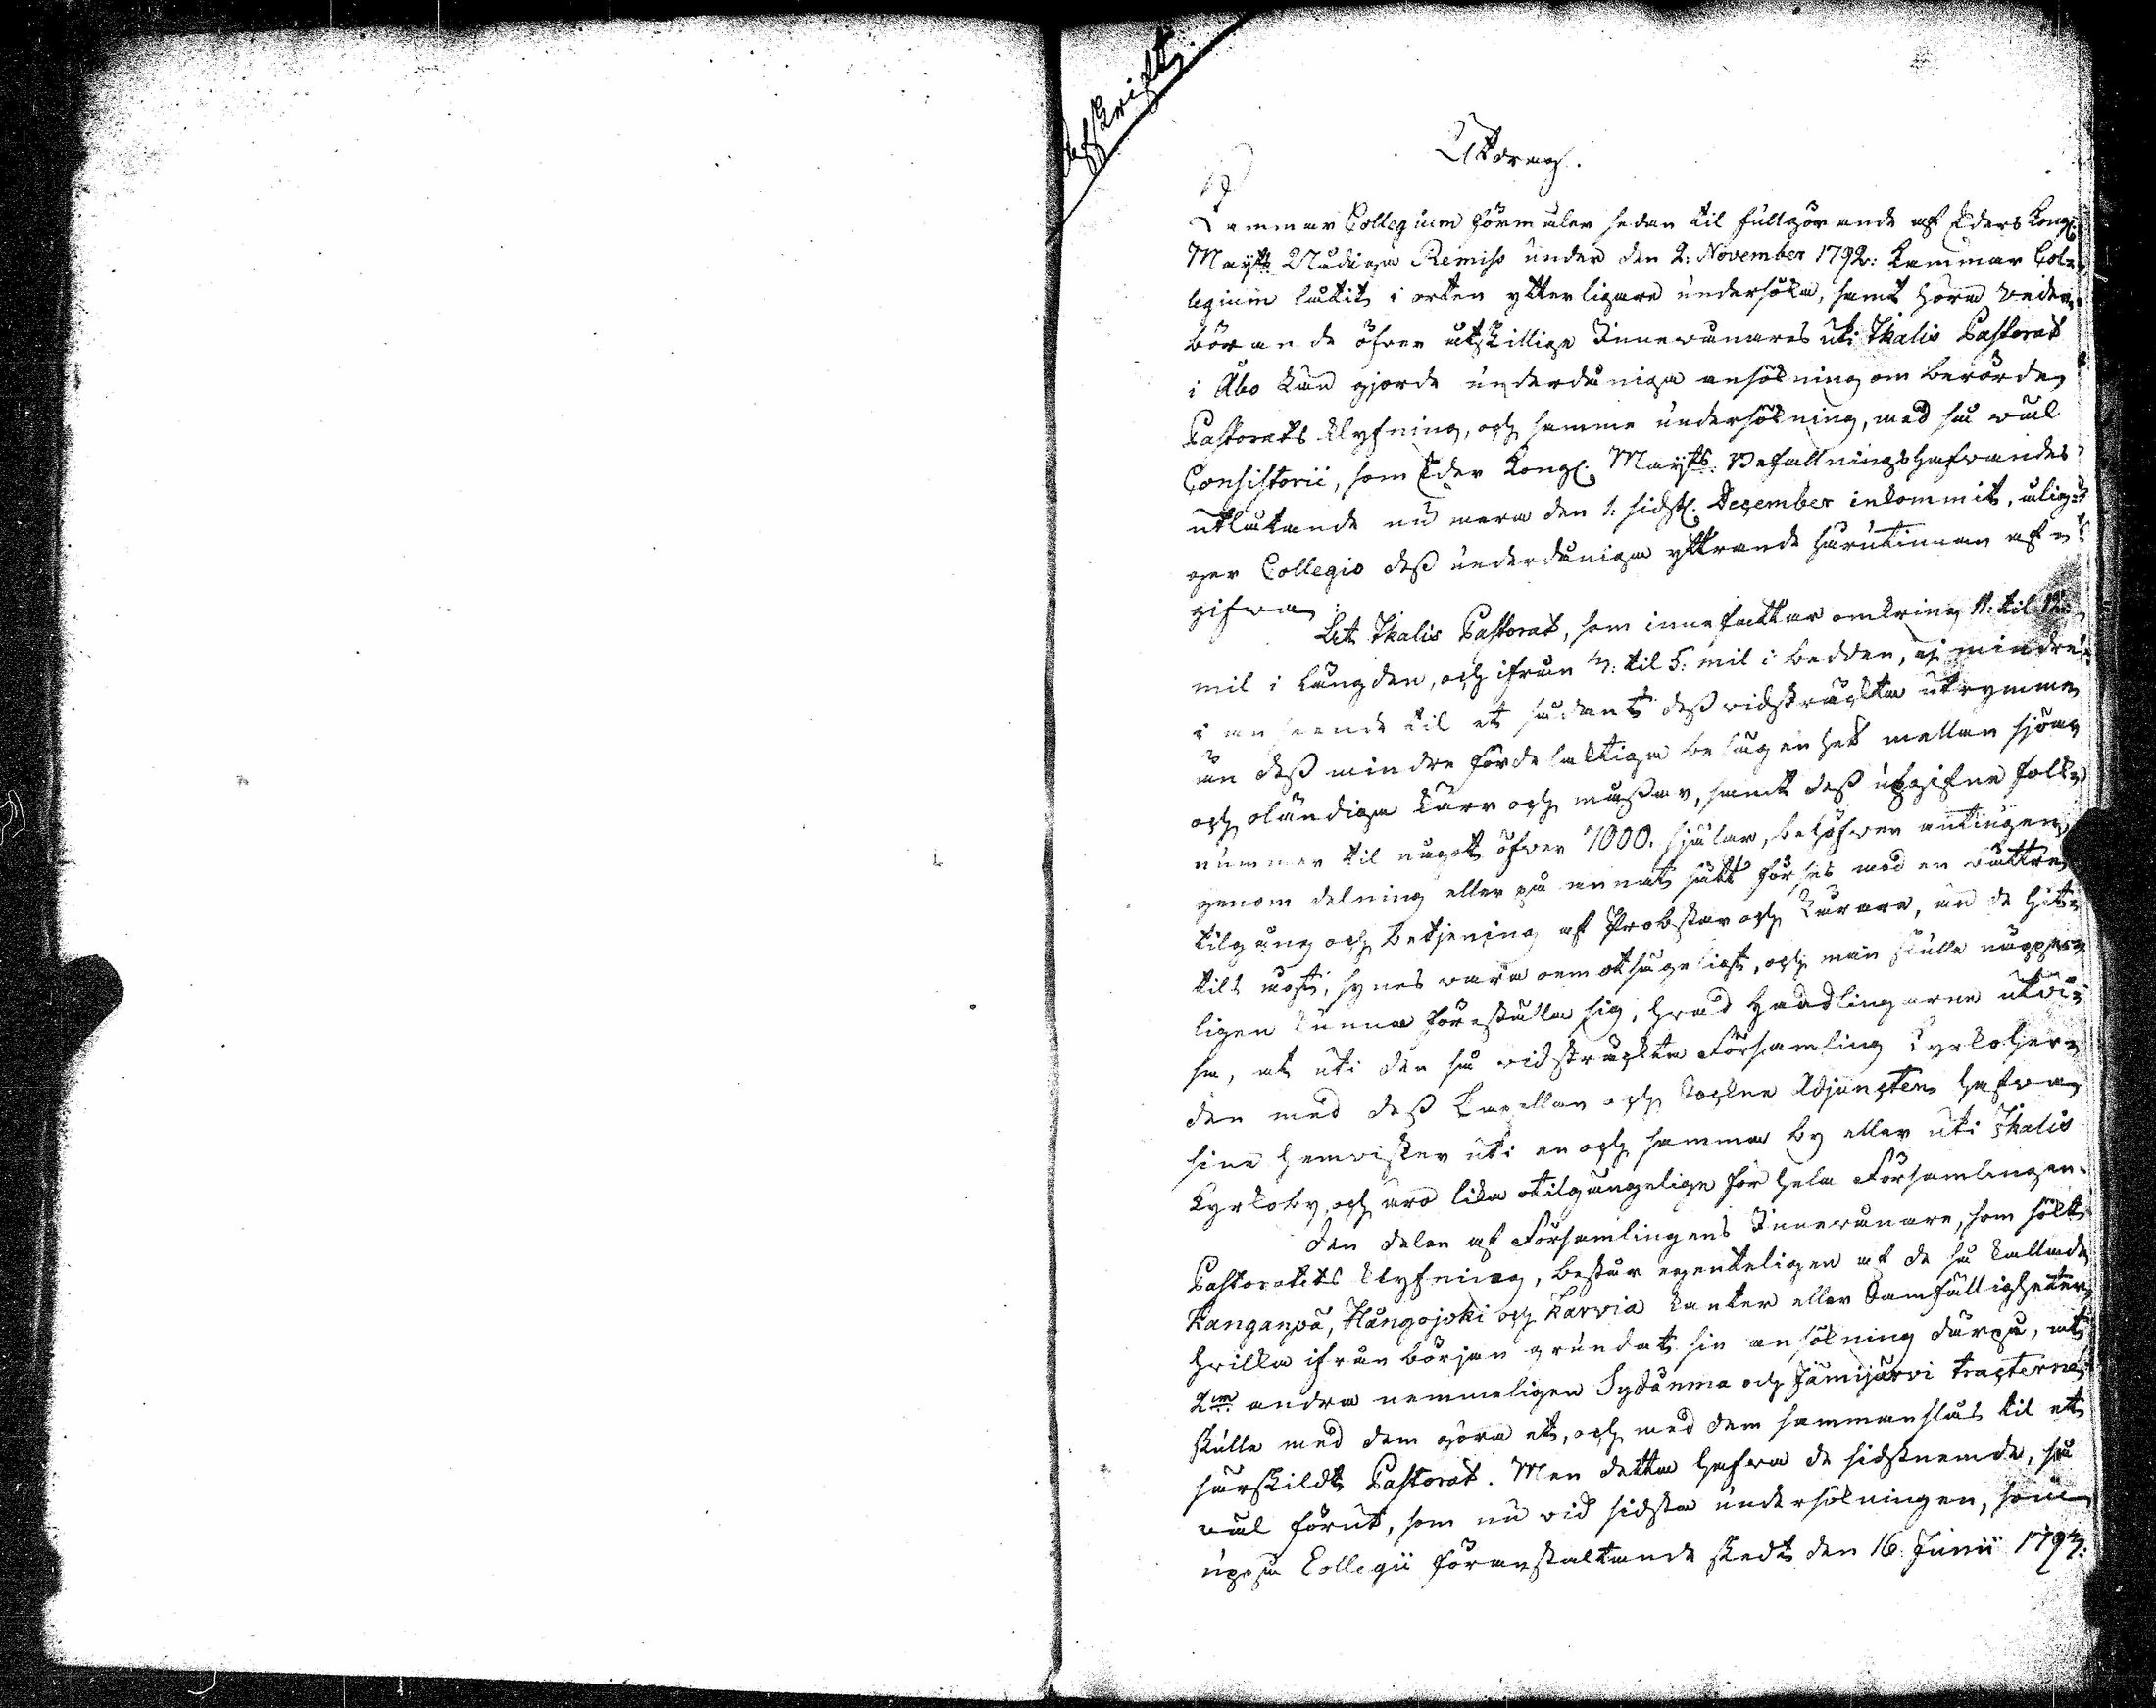 Afskrift
Utdrag.
Kammar Collegium förmäler sedan til fullgörande af Eders Kongl.
Mayts Nådiga Remiss under den 2: November 1792: Kammar Col=
legium låtit i orten ytterligare undersöka, samt höra veder=
börande öfver åtskillige Innevånares uti Ikalis Pastorat
i Åbo Län gjorde underdåniga ansökning om berörde
Pastorats klyfning, och samma undersökning, med så wäl
Consistorii, som Eder Kongl. Mayts. Befallningshafvandes
utlåtande nu mera den 1. sidstl. December inkommit, ålig=
ger Collegio dess underdåniga yttrande härutinnan af=
gifva.
At Ikalis Pastorat, som innefattar omkring 11: til 12:
mil i längden, och ifrån 3: til 5: mil i bredden, ej mindre
i anseende til et sådant dess vidsträckta utrymme
än dess mindre fördelaktiga belägenhet mellan sjöar
och oländiga kärr och måssar, samt dess upgifne folk=
nummer til något öfver 7000. själar, behöfver antingen
genom delning eller på annat sätt förses med en bättre
tilgång och betjening af Prästar och Lärare, än de hit=
tils ägt, synes vara oemotsägeligt, och man skulle näppe=
ligen kunna föreställa sig, hvad Handlingarne utvi=
sa, at uti den så vidsträckta Församling Kyrkoher=
den med dess Kapellan och Sockne Adjuncten hafva
sine hemvister uti en och samma by eller uti Ikalis
Kyrkoby, och äro lika otilgängelige för hela Församlingen.
Den delen af Församlingens Innevånare, som sökt
Pastoratets klyfning, består egenteligen af de så kallade
Kanganpä, Hångojoki och Karvia kanter eller Samfälligheter,
hvilka ifrån början grundat sin ansökning därpå, at
2ne andra nemmeligen Sydänma och Jämijärvi tracterne
skulle med dem göra et, och med dem sammanslås til et
särskildt Pastorat. Men detta hafva de sidstnemde, så
väl förut, som nu vid sidsta undersökningen, som
uppå Collegii föranstaltande skedt den 16. Junii 1793: